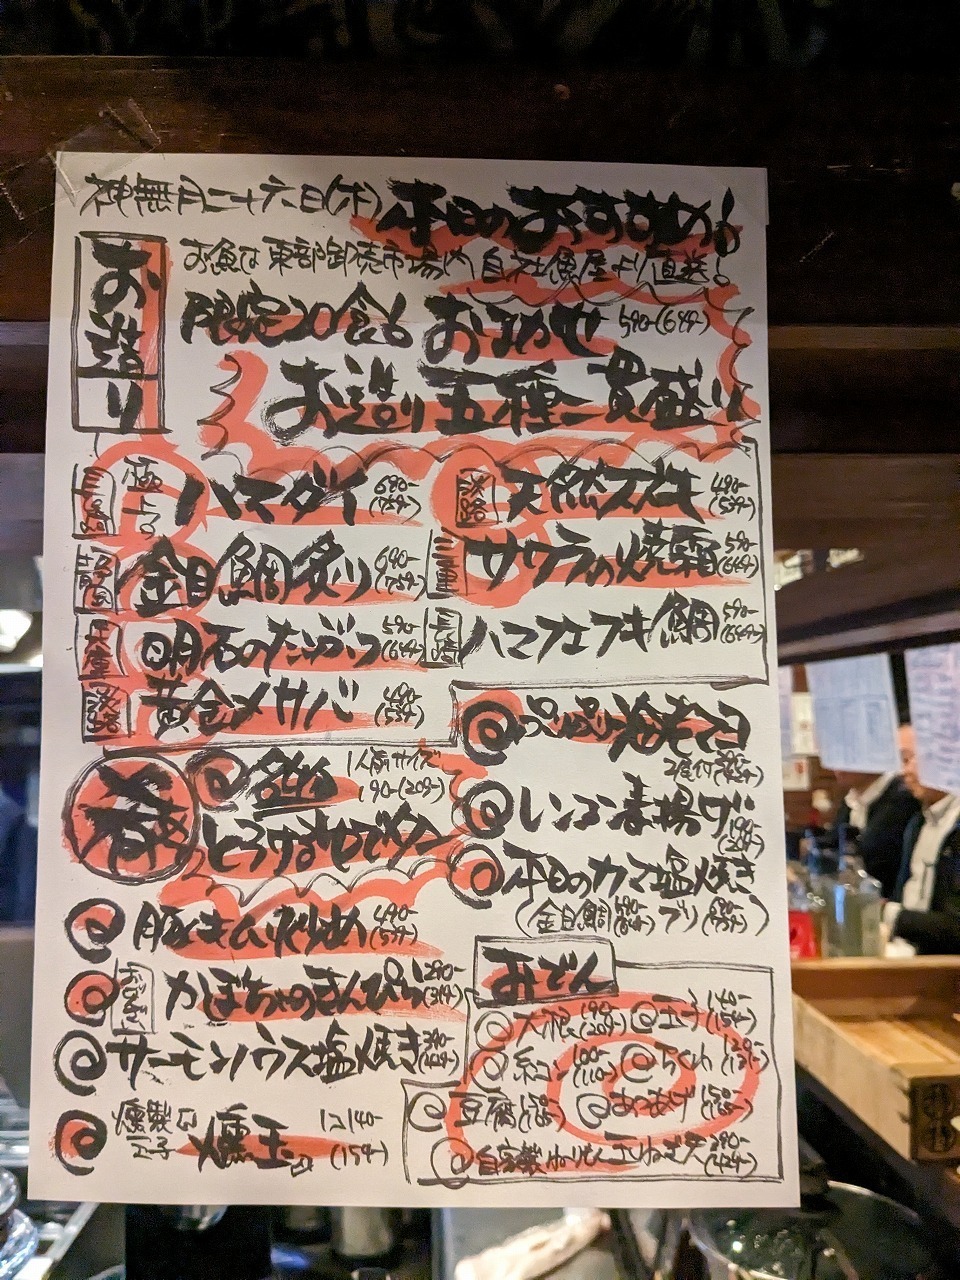 神無月二十六日(木) 本日のおすすめ!
お魚は東部卸売市場内 自社魚屋より直送!
お造り
限定20食! おまかせ 590-(649-)
お造り五種一貫盛り
極上 ハマダイ 690-(759-)
金目鯛炙り 690-(759-)
兵庫 明石の 590-(649-)
淡路 黄金〆サバ 490-(539-)
淡路 天然スズキ 490-(539-)
サワラの焼霜 590-(649-)
ハマフエフキ鯛 590-(649-)
名物 1人前サイズ 190-(209-)
とろける
豚キムチ炒め 490-(539-)
かぼちゃのきんぴら 290-(319-)
サーモンハラス塩焼き 390-(429-)
燻製玉子 燻玉 1コ140-(154-)
素揚げ 190-(209-)
本日のカマ塩焼き
(金目鯛 590-(649-) ブリ 690-(759-))
おでん
大根 190-(209-) 玉子 140-(154-)
糸コン 100-(110-) ちくわ 120-(132-)
豆腐 150-(165-) あつあげ 150-(165-)
自家製 玉ねぎ天 390-(429-)